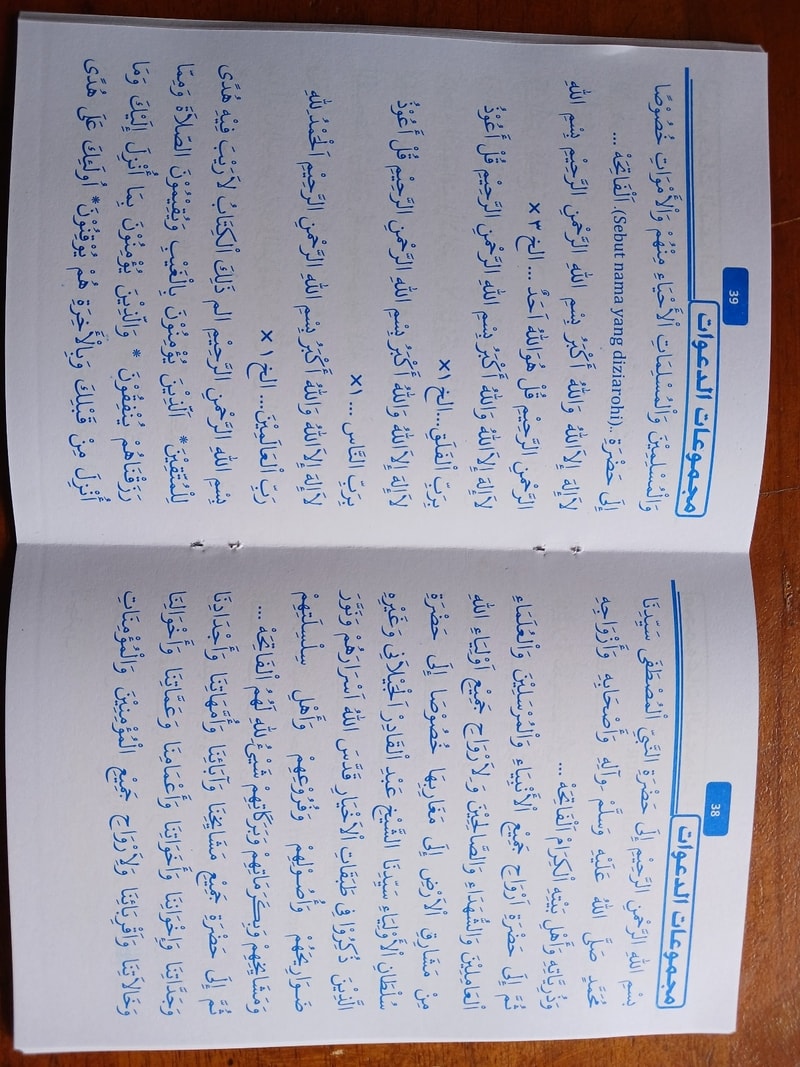 38
مجموعات الدعوات
بِسْمِ اللهِ الرَّحْمٰنِ الرَّحِيْمِ إِلَى حَضْرَةِ النَّبِيِّ الْمُصْطَفَى سَيِّدِنَا
مُحَمَّدٍ صَلَّى اللهُ عَلَيْهِ وَسَلَّمَ وَآلِهِ وَأَصْحَابِهِ وَأَزْوَاجِهِ
وَذُرِّيَّاتِهِ وَأَهْلِ بَيْتِهِ الْكِرَامْ اَلْفَاتِحَةْ ...
ثُمَّ إِلَى حَضْرَةِ أَرْوَاحِ جَمِيْعِ الْأَنْبِيَاءِ وَالْمُرْسَلِيْنَ وَالْعُلَمَاءِ
الْعَامِلِيْنَ وَالشُّهَدَاءِ وَالصَّالِحِيْنَ وَلِأَرْوَاحِ جَمِيْعِ أَوْلِيَاءِ اللهِ
مِنْ مَشَارِقِ الْأَرْضِ إِلَى مَغَارِبِهَا خُصُوْصًا إِلَى حَضْرَةِ
سُلْطَانِ الْأَوْلِيَاءِ سَيِّدِنَا الشَّيْخِ عَبْدِ الْقَادِرِ الْجَيْلَانِى وَغَيْرِهِ
الَّذِيْنَ ذُكِرُوْا فِى طَبَقَاتِ الْأَخْيَارِ قَدَّسَ اللهُ أَسْرَارَهُمْ وَنَوَّرَ
ضَوَارِيْحَهُمْ وَأُصُوْلِهِمْ وَفُرُوْعِهِمْ وَأَهْلِ سِلْسِلَتِهِمْ
وَمَشَايِخِهِمْ وَبِكَرَمَاتِهِمْ وَبَرَكَاتِهِمْ شَيْءٌ لِلهِ لَهُمُ الْفَاتِحَةْ ...
ثُمَّ إِلَى حَضْرَةِ جَمِيْعِ مَشَايِخِنَا وَآبَائِنَا وَأُمَّهَاتِنَا وَأَجْدَادِنَا
وَجَدَّاتِنَا وَإِخْوَانِنَا وَأَخَوَاتِنَا وَأَعْمَامِنَا وَعَمَّاتِنَا وَأَخْوَالِنَا
وَخَالَاتِنَا وَأَقْرِبَائِنَا وَلِأَرْوَاحِ جَمِيْعِ الْمُؤْمِنِيْنَ وَالْمُؤْمِنَاتِ
39
مجموعات الدعوات
وَالْمُسْلِمِيْنَ وَالْمُسْلِمَاتِ الْأَحْيَاءِ مِنْهُمْ وَالْأَمْوَاتِ خُصُوْصًا
إِلَى حَضْرَةِ ..(Sebut nama yang diziarohi). اَلْفَاتِحَةْ ...
لَا إِلٰهَ إِلَّا اللهُ وَاللهُ أَكْبَرُ بِسْمِ اللهِ الرَّحْمٰنِ الرَّحِيْمِ بِسْمِ اللهِ
الرَّحْمٰنِ الرَّحِيْمِ قُلْ هُوَ اللهُ أَحَدٌ ... الخ ٣ ×
لَا إِلٰهَ إِلَّا اللهُ وَاللهُ أَكْبَرُ بِسْمِ اللهِ الرَّحْمٰنِ الرَّحِيْمِ قُلْ أَعُوْذُ
بِرَبِّ الْفَلَقِ...الخ ١×
لَا إِلٰهَ إِلَّا اللهُ وَاللهُ أَكْبَرُ بِسْمِ اللهِ الرَّحْمٰنِ الرَّحِيْمِ قُلْ أَعُوْذُ
بِرَبِّ النَّاسِ ... ١×
لَا إِلٰهَ إِلَّا اللهُ وَاللهُ أَكْبَرُ بِسْمِ اللهِ الرَّحْمٰنِ الرَّحِيْمِ اَلْحَمْدُ لِلّٰهِ
رَبِّ الْعَالَمِيْنَ... الخ ١ ×
بِسْمِ اللهِ الرَّحْمٰنِ الرَّحِيْمِ الم ذٰلِكَ الْكِتَابُ لَارَيْبَ فِيْهِ هُدًى
لِلْمُتَّقِيْنَ* الَّذِيْنَ يُؤْمِنُوْنَ بِالْغَيْبِ وَيُقِيْمُوْنَ الصَّلَاةَ وَمِمَّا
رَزَقْنَاهُمْ يُنْفِقُوْنَ * وَالَّذِيْنَ يُؤْمِنُوْنَ بِمَا أُنْزِلَ إِلَيْكَ وَمَا
أُنْزِلَ مِنْ قَبْلِكَ وَبِالْأَخِرَةِ هُمْ يُوْقِنُوْنَ* أُولٰئِكَ عَلَى هُدًى